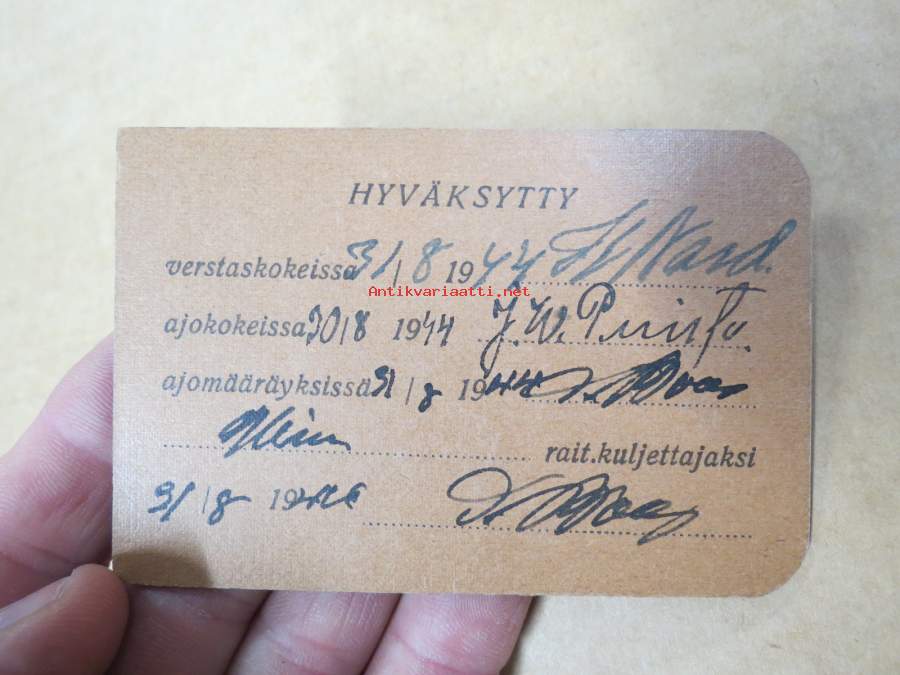 HYVÄKSYTTY
verstaskokeissa 31/8 1944
Antikvariaatti.net
ajokokeissa 30/8 1944 J. W. Puisto.
ajomääräyksissä 31/8 1944
rait.kuljettajaksi
31/8 1944